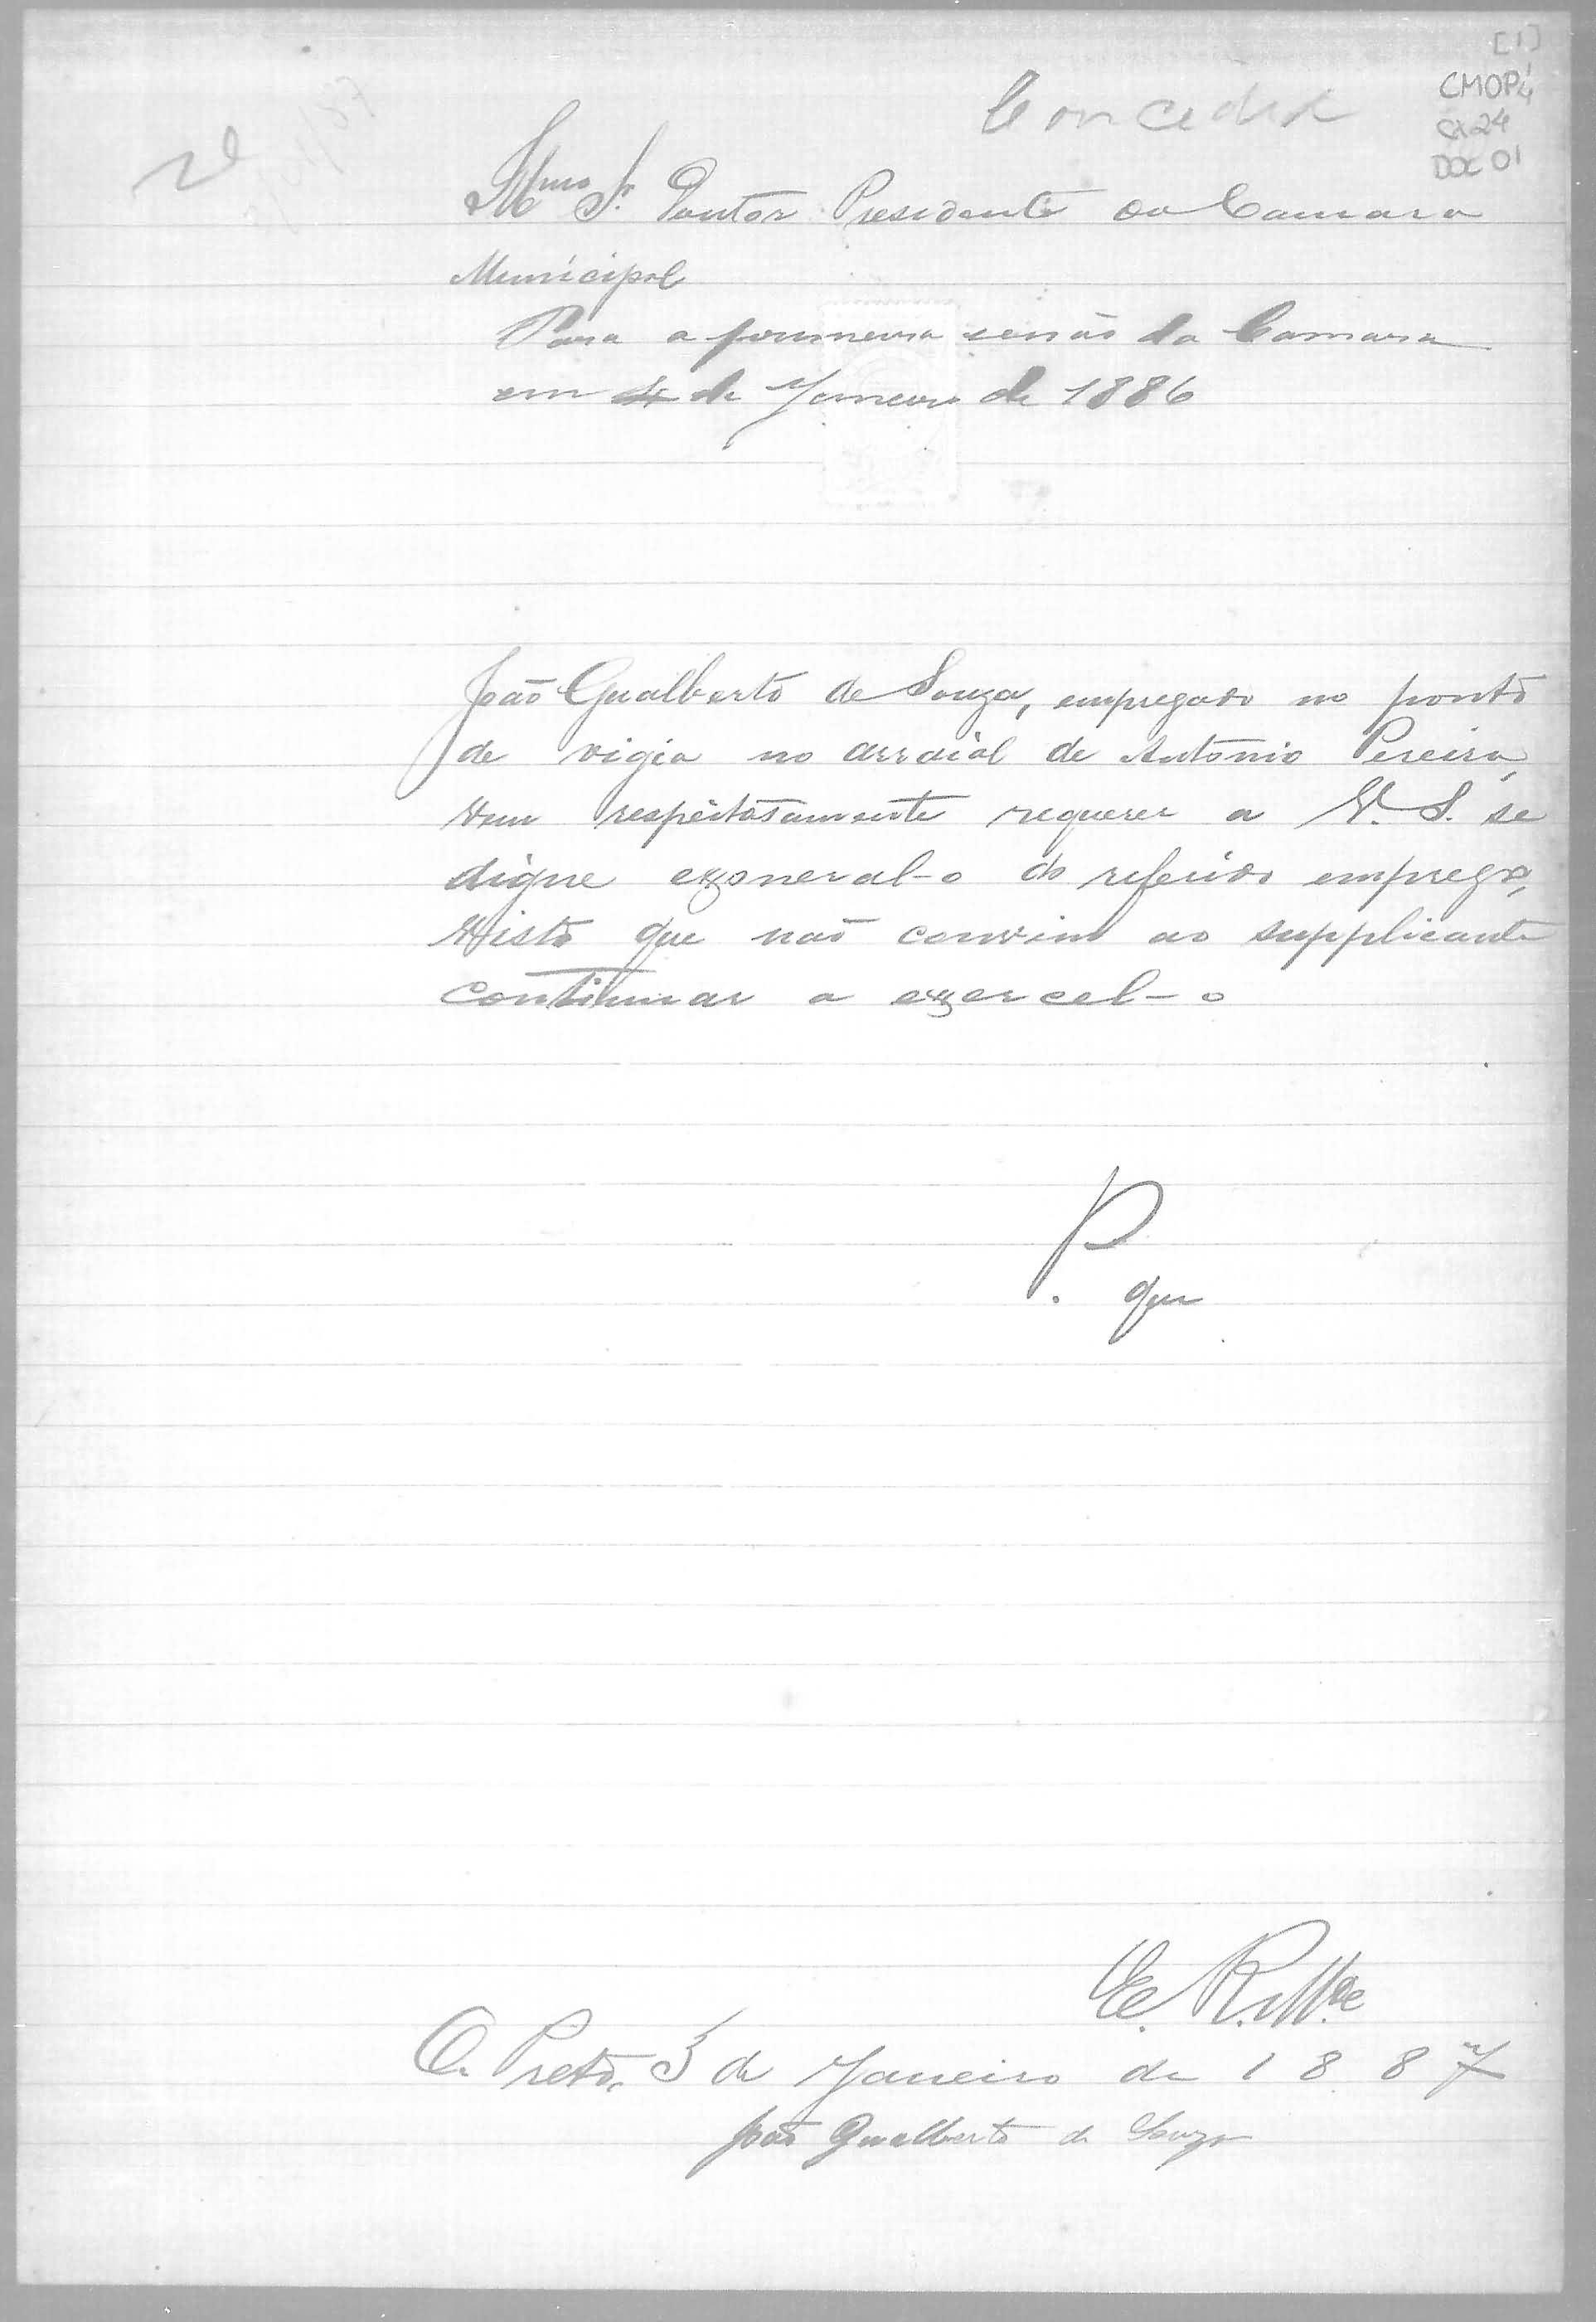 [1]
CMOP
CX 24
DOC 01
Conceder
Illmo Sr. Doutor Presidente da Camara
Municipal
Para a primeira sessão da Camara
em 4 de Janeiro de 1886
João Gualberto de Souza, empregado no ponto
de vigia no arraial de Antonio Pereira,
vem respeitosamente requerer a V. S. se
digne exoneral-o do referido emprego,
visto que não convem ao supplicante
continuar a exercel-o
P.
que
E. R. Mce
O. Preto, 3 de Janeiro de 1887
João Gualberto de Souza